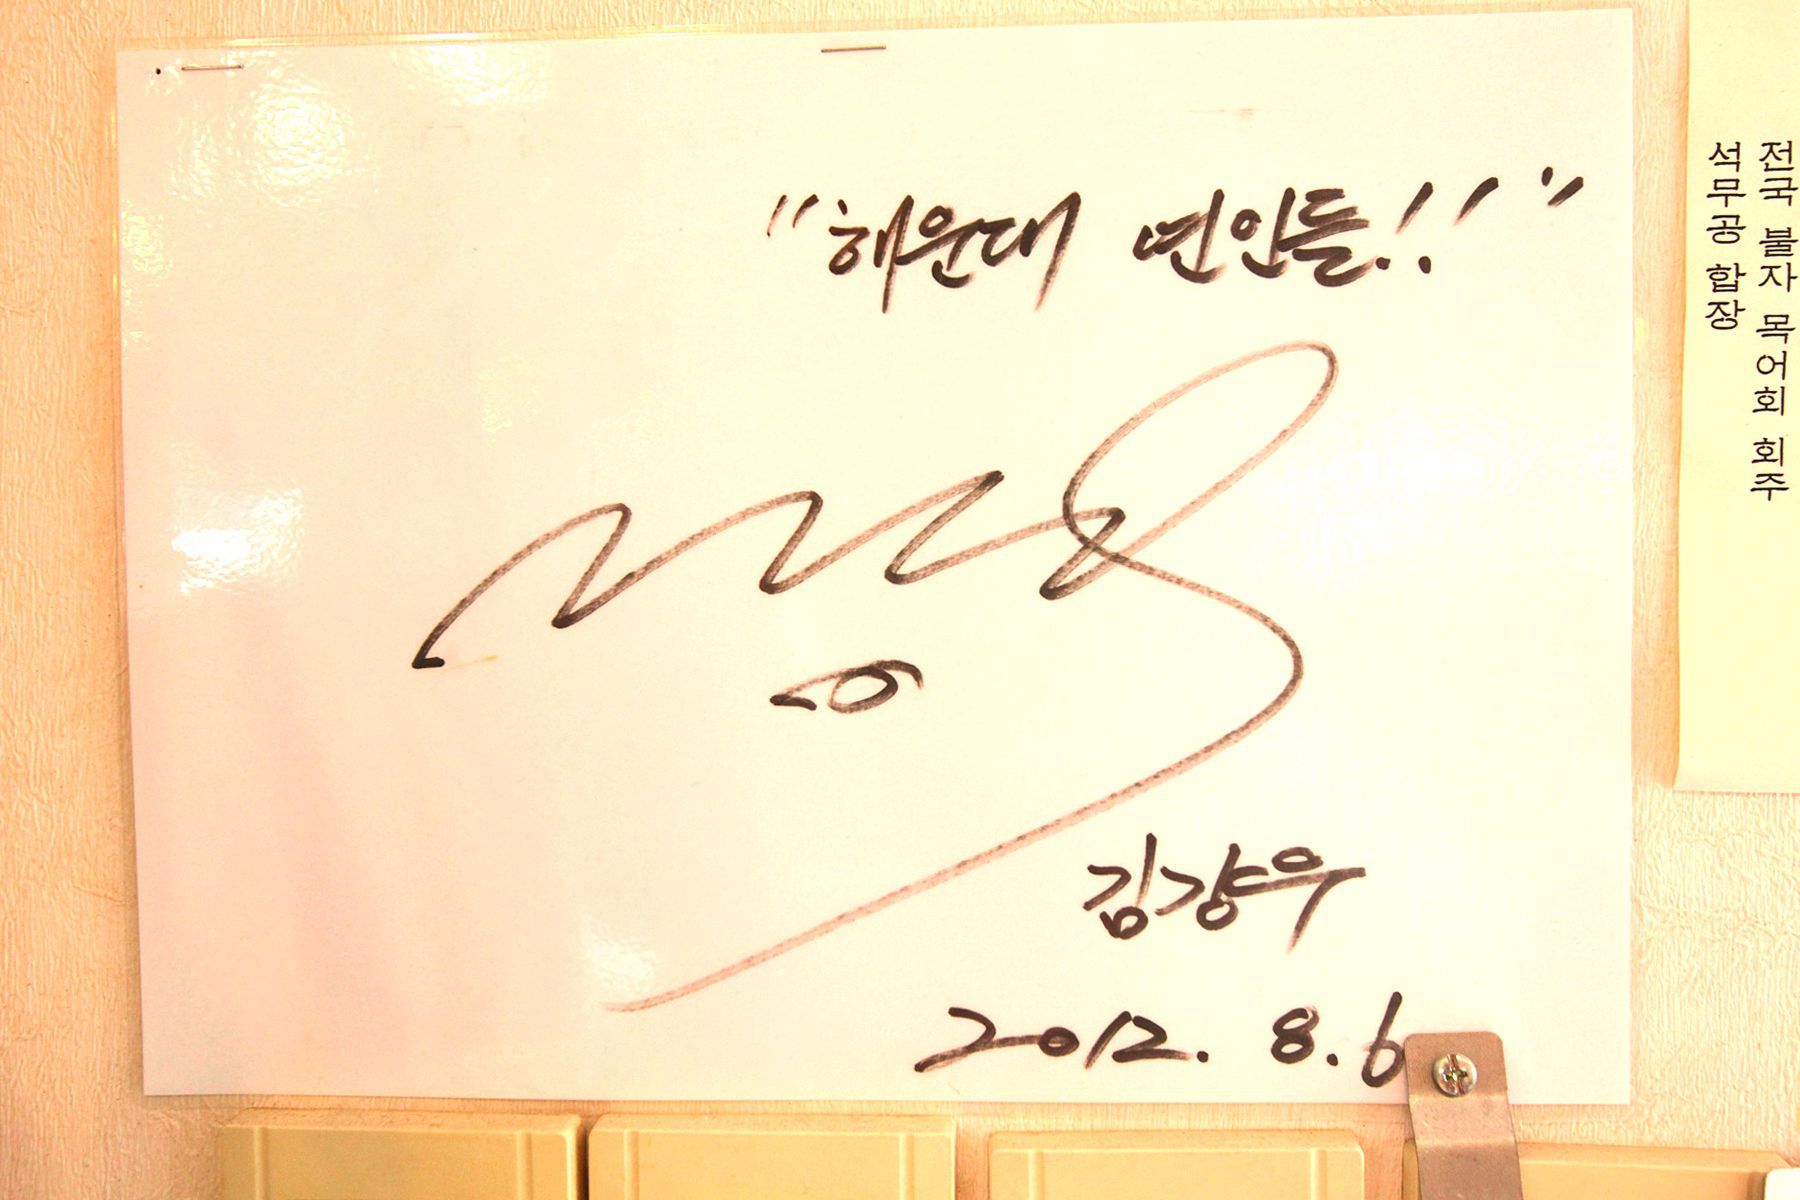 "해운대 연인들!!"
김강우
2012. 8. 6
전국 불자 목어회 회주
석무공 합장